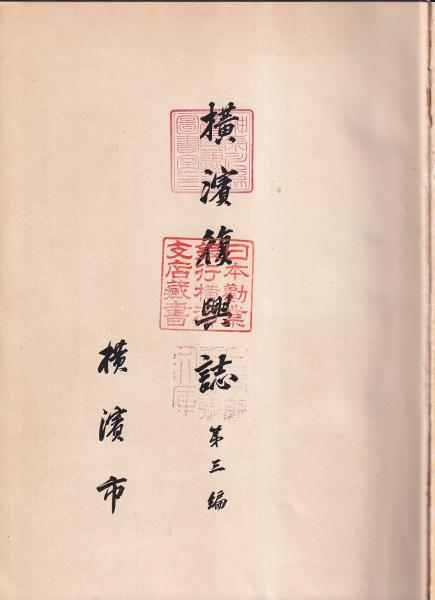 橫濱復興誌 第三編
橫濱市
日本勸業
銀行橫濱
支店藏書